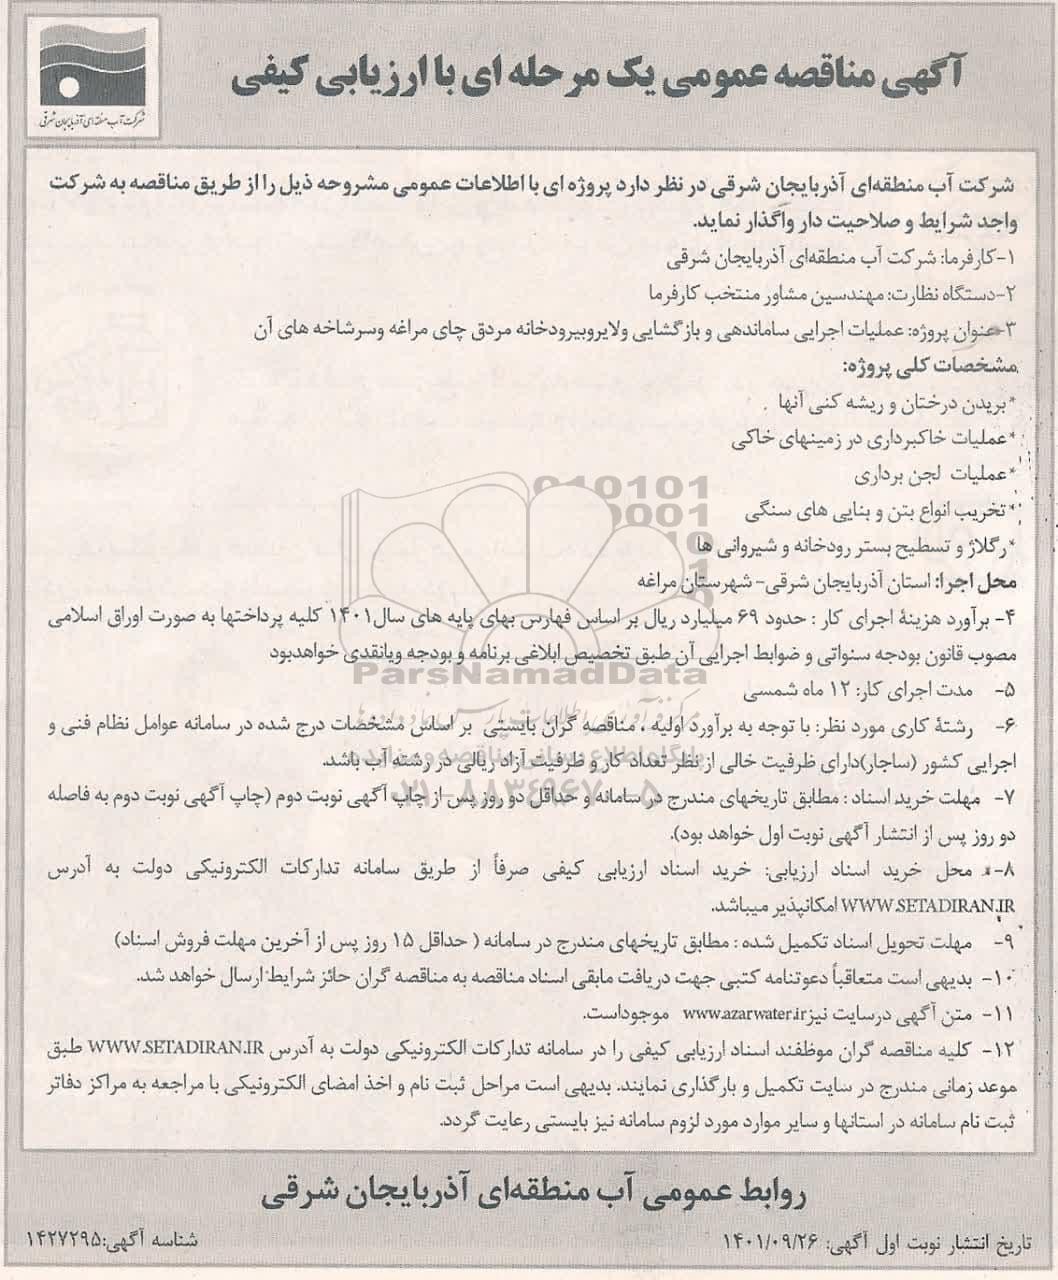 آگهی مناقصه عمومی یک مرحله ای با ارزیابی کیفی
شرکت آب منطقه‌ای آذربایجان شرقی
شرکت آب منطقه‌ای آذربایجان شرقی در نظر دارد پروژه ای با اطلاعات عمومی مشروحه ذیل را از طریق مناقصه به شرکت
واجد شرایط و صلاحیت دار واگذار نماید.
۱-کارفرما: شرکت آب منطقه‌ای آذربایجان شرقی
۲-دستگاه نظارت: مهندسین مشاور منتخب کارفرما
۳-عنوان پروژه: عملیات اجرایی ساماندهی و بازگشایی ولایروبیرودخانه مردق چای مراغه وسرشاخه های آن
مشخصات کلی پروژه:
*بریدن درختان و ریشه کنی آنها
*عملیات خاکبرداری در زمینهای خاکی
*عملیات لجن برداری
*تخریب انواع بتن و بنایی های سنگی
*رگلاژ و تسطیح بستر رودخانه و شیروانی ها
محل اجرا: استان آذربایجان شرقی- شهرستان مراغه
۴- برآورد هزینهٔ اجرای کار : حدود ۶۹ میلیارد ریال بر اساس فهارس بهای پایه های سال۱۴۰۱ کلیه پرداختها به صورت اوراق اسلامی
مصوب قانون بودجه سنواتی و ضوابط اجرایی آن طبق تخصیص ابلاغی برنامه و بودجه ویانقدی خواهدبود
۵- مدت اجرای کار: ۱۲ ماه شمسی
۶- رشتهٔ کاری مورد نظر: با توجه به برآورد اولیه ، مناقصه گران بایستی بر اساس مشخصات درج شده در سامانه عوامل نظام فنی و
اجرایی کشور (ساجار)دارای ظرفیت خالی از نظر تعداد کار و ظرفیت آزاد ریالی در رشته آب باشد.
۷- مهلت خرید اسناد : مطابق تاریخهای مندرج در سامانه و حداقل دو روز پس از چاپ آگهی نوبت دوم (چاپ آگهی نوبت دوم به فاصله
دو روز پس از انتشار آگهی نوبت اول خواهد بود).
۸- محل خرید اسناد ارزیابی: خرید اسناد ارزیابی کیفی صرفاً از طریق سامانه تدارکات الکترونیکی دولت به آدرس
WWW.SETADIRAN.IR امکانپذیر میباشد.
۹- مهلت تحویل اسناد تکمیل شده : مطابق تاریخهای مندرج در سامانه ( حداقل ۱۵ روز پس از آخرین مهلت فروش اسناد)
۱۰- بدیهی است متعاقباً دعوتنامه کتبی جهت دریافت مابقی اسناد مناقصه به مناقصه گران حائز شرایط ارسال خواهد شد.
۱۱- متن آگهی درسایت نیزwww.azarwater.ir موجوداست.
۱۲- کلیه مناقصه گران موظفند اسناد ارزیابی کیفی را در سامانه تدارکات الکترونیکی دولت به آدرس WWW.SETADIRAN.IR طبق
موعد زمانی مندرج در سایت تکمیل و بارگذاری نمایند. بدیهی است مراحل ثبت نام و اخذ امضای الکترونیکی با مراجعه به مراکز دفاتر
ثبت نام سامانه در استانها و سایر موارد مورد لزوم سامانه نیز بایستی رعایت گردد.
روابط عمومی آب منطقه‌ای آذربایجان شرقی
تاریخ انتشار نوبت اول آگهی: ۱۴۰۱/۰۹/۲۶
شناسه آگهی:۱۴۲۷۲۹۵
ParsNamadData
پایگاه اطلاع رسانی مناقصه و مزایده
۰۲۱-۸۸۳۴۹۶۷۰-۵